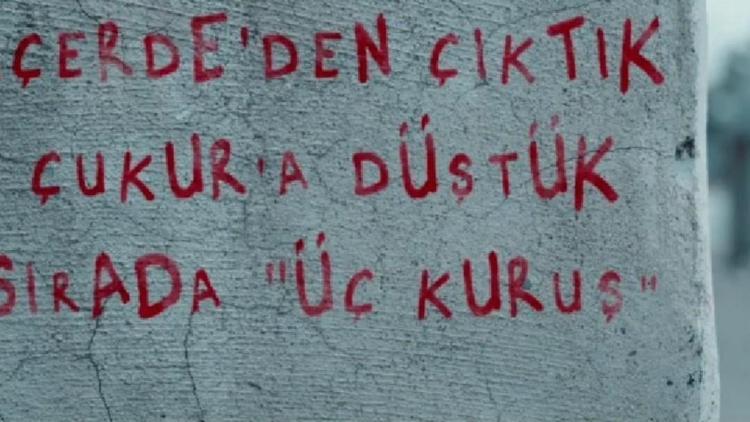 ÇERDE'DEN ÇIKTIK
ÇUKUR'A DÜŞTÜK
SIRADA "ÜÇ KURUŞ"